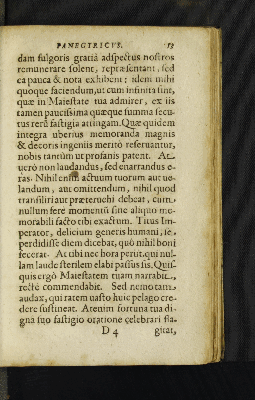 PANEGYRICVS. 53
dam fulgoris gratiâ adspectus nostros
remunerare solent, repræsentant, sed
ea pauca & nota exhibent: idem mihi
quoque faciendum, ut cum infinita sint,
quæ in Maiestate tua admirer, ex iis
tamen paucissima quæque summa secu-
tus rerũ fastigia attingam. Quæ quidem
integra uberius memoranda magnis
& decoris ingeniis meritò reservantur,
nobis tantùm ut profanis patent. At
verò non laudandus, sed enarrandus e-
ras. Nihil enim actuum tuorum aut ve-
landum, aut omittendum, nihil quod
transiliri aut prætervehi debeat, cum
nullum fere momentũ sine aliquo me-
morabili facto tibi exactum. Titus Im-
perator, delicium generis humani, se
perdidisse diem dicebat, quò nihil boni
fecerat. At tibi nec hora perit, qui nul-
lam laude sterilem elabi passus sis. Quis-
quis ergò Maiestatem tuam narrabit,
rectè commendabit. Sed nemo tam
audax, qui ratem vasto huic pelago cre-
dere sustineat. Atenim fortuna tua di-
gna suo fastigio oratione celebrari fla-
D 4 gitat,